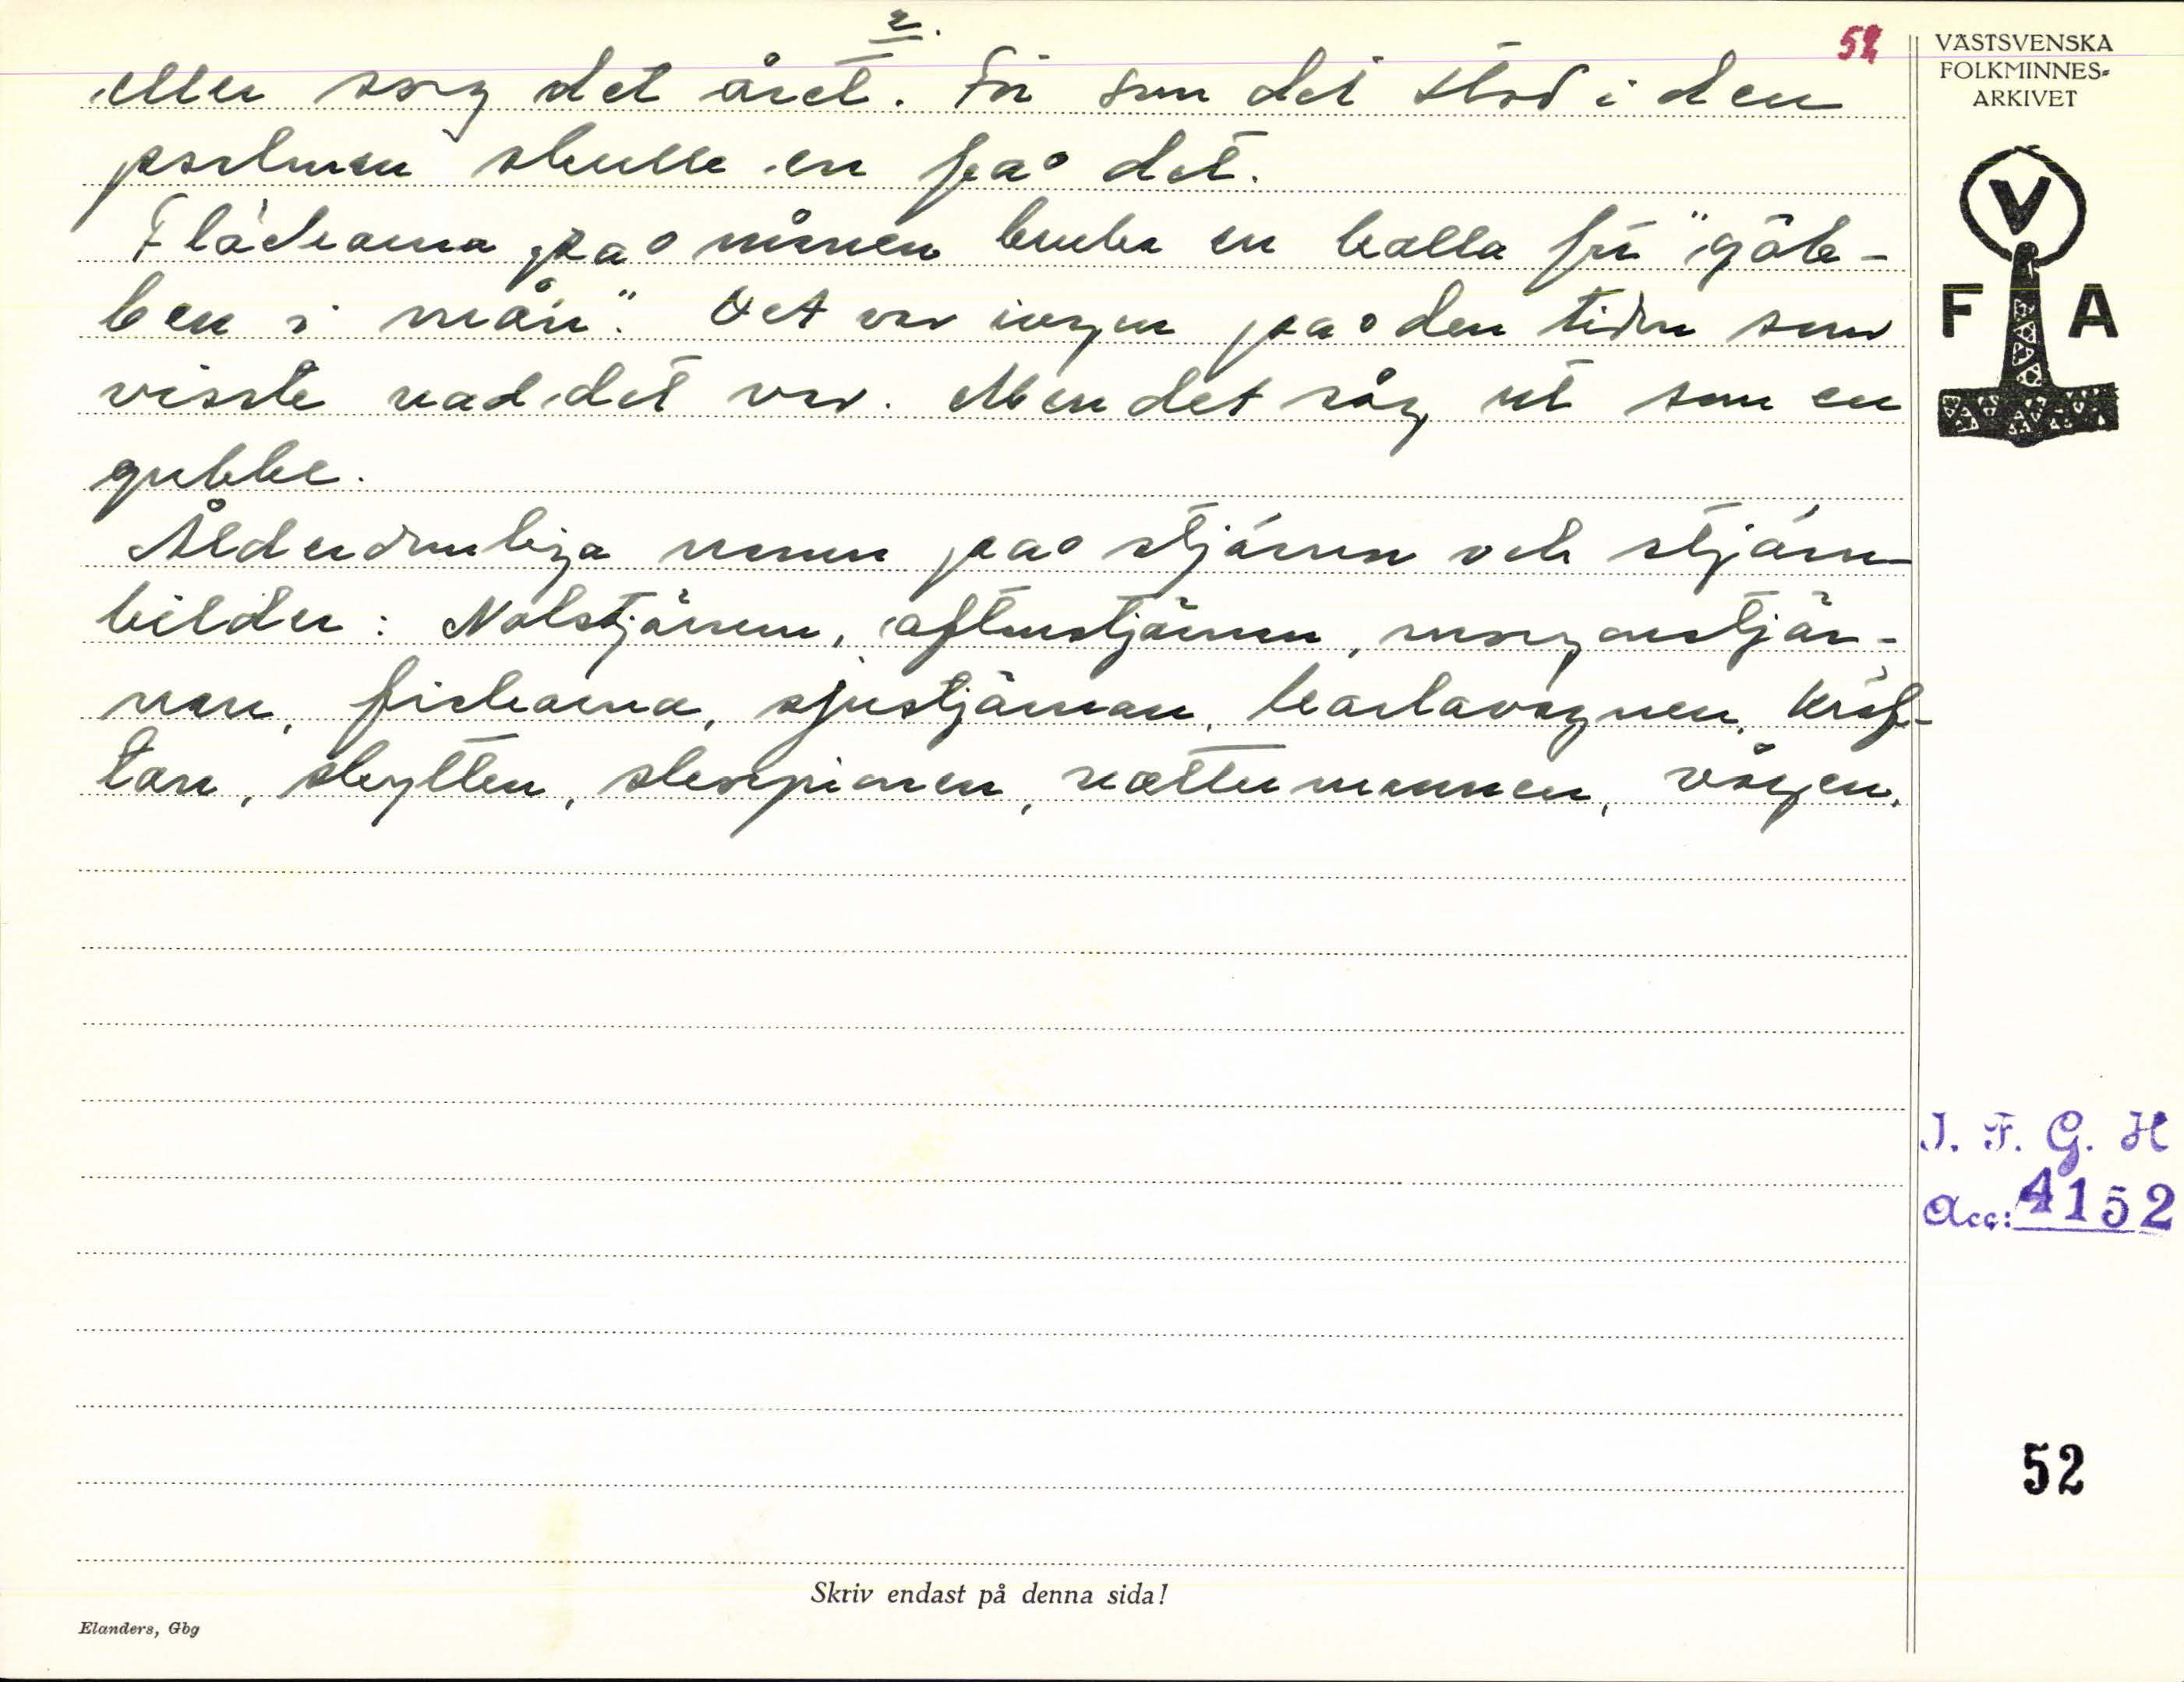 2.
52
eller sorg det året. För som det stod i den
psalmen skulle en få det.
Fläckarna på månen bruka en kalla för "göb-
ben i mån". Det var ingen på den tiden som
visste vad det var. Men det såg ut som en
gubbe.
Ålderdomliga namn på stjärnor och stjärn-
bilder: Nolstjärnan, aftonstjärnan, morgonstjär-
nan, fiskarna, sjustjärnan, karlavagnen, kräf-
tan, skytten, skorpionen, vattumannen, vågen.
VÄSTSVENSKA
FOLKMINNES-
ARKIVET
V
F A
I. F. G. H
Acc: 4152
52
Skriv endast på denna sida!
Elanders, Gbg